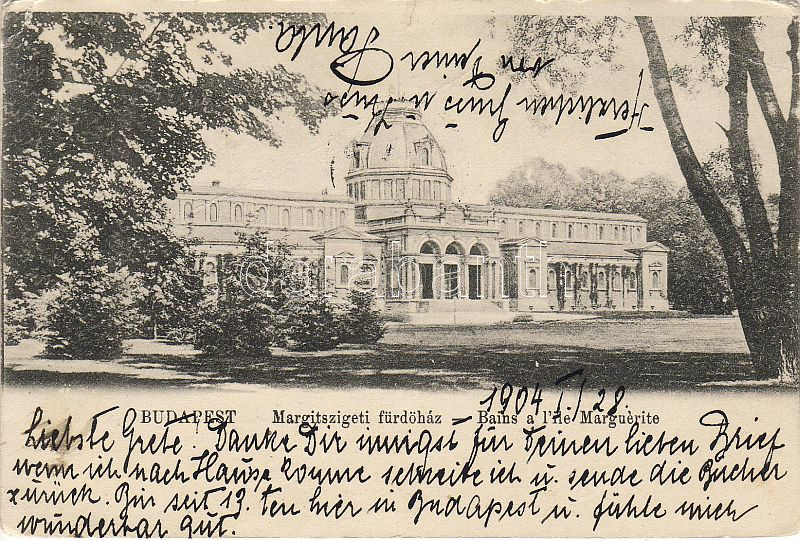 BUDAPEST Margitszigeti fürdőház – Bains a l'île Marguérite
1904 I./28.
Liebste Grete! Danke Dir innigst für Deinen lieben Brief
wenn ich nach Hause komme schreibe ich u. sende die Bücher
zurück. Bin seit 19. ten hier in Budapest u. fühle mich
wunderbar gut.
Herzlichen Gruß u. Kuss
von Deiner
Paula
darabanth